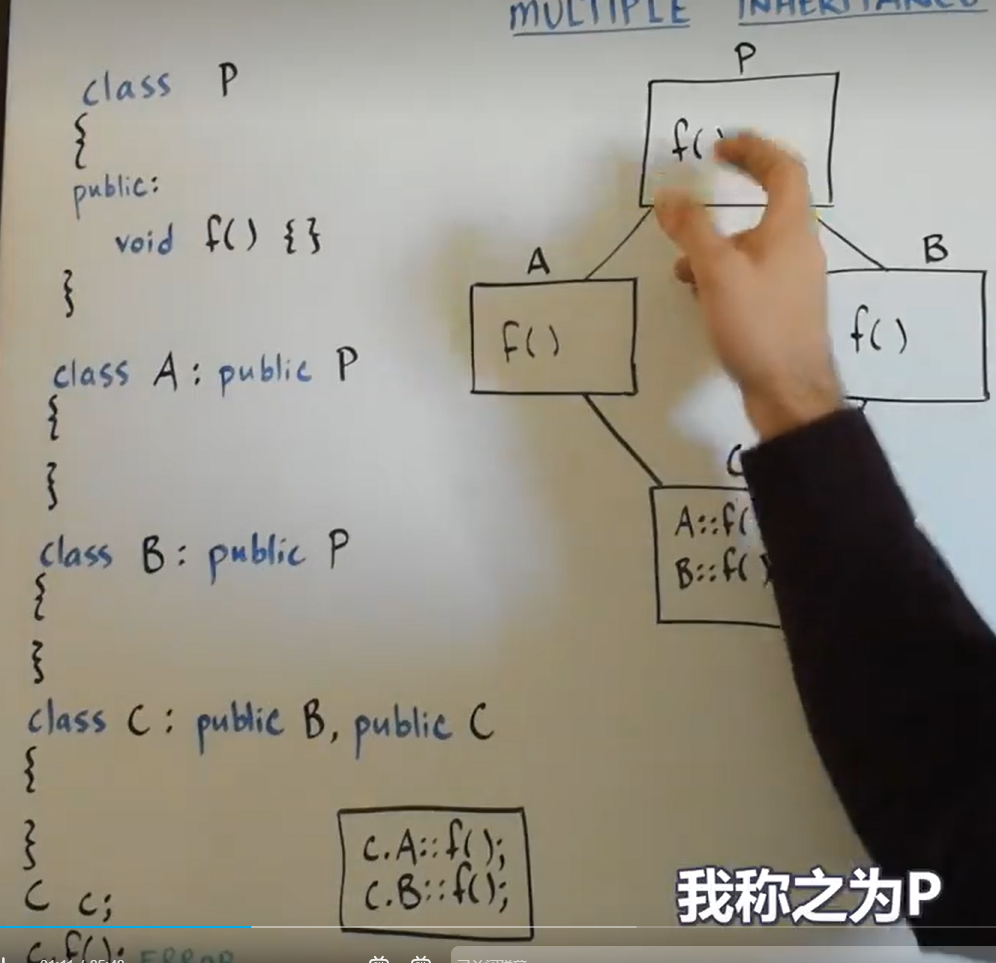 MULTIPLE INHERITANCE
class P
{
public:
void f() {}
}
class A: public P
{
}
class B: public P
{
}
class C: public B, public C
{
}
C c;
c.f(); ERROR
P
f()
A
f()
B
f()
C
A::f(
B::f()
c.A::f();
c.B::f();
我称之为P